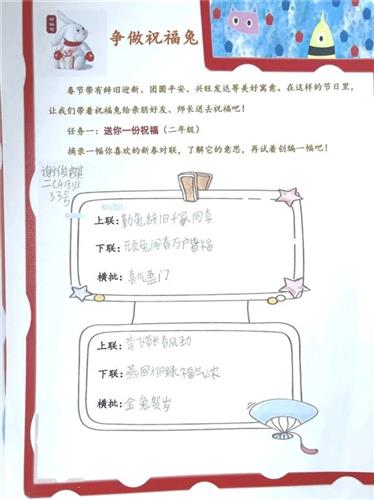 争做祝福兔
春节带有辞旧迎新、团圆平安、兴旺发达等美好寓意。在这样的节日里，
让我们带着祝福兔给亲朋好友、师长送去祝福吧！
任务一：送你一份祝福（二年级）
摘录一幅你喜欢的新春对联，了解它的意思，再试着创编一幅吧！
二(4)班
33号
上联：勤兔辞旧千家同喜
下联：顽兔闹春万户皆福
横批：喜气盈门
上联：莺飞草长春风动
下联：燕回柳绿福气浓
横批：金兔贺岁